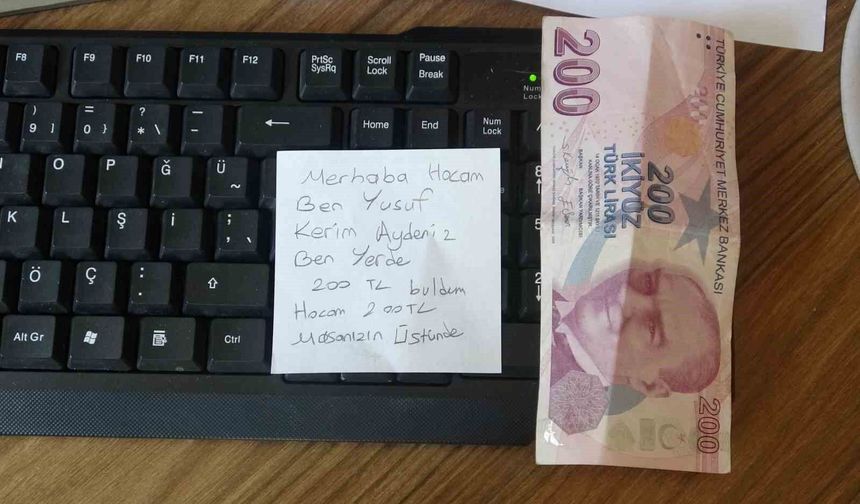 F8 F9 F10 F11 F12 PrtSc SysRq Scroll Lock Pause Break
Num Lock
) 9 ] = 0 } ? * \ _ - ← Home End Num Lock /
O P Ğ Ü ~ 8
K L Ş İ ; , 5
Ö Ç : . ⇧ 2
Alt Gr Ctrl
Merhaba Hocam
Ben Yusuf
Kerim Aydeniz
Ben Yerde
200 TL buldum
Hocam 200TL
Masanızın Üstünde
200
TÜRKİYE CUMHURİYET MERKEZ BANKASI
200
İKİYÜZ
TÜRK LİRASI
200